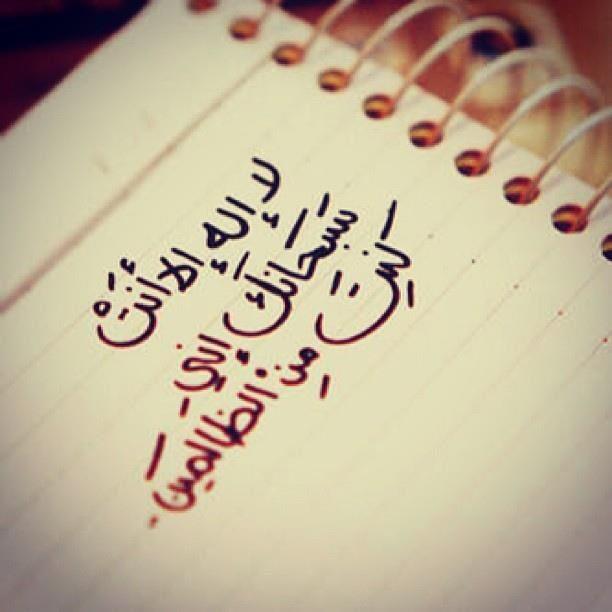 لا إله إلا أنتْ
سبحانك إني
كنت من الظالمين